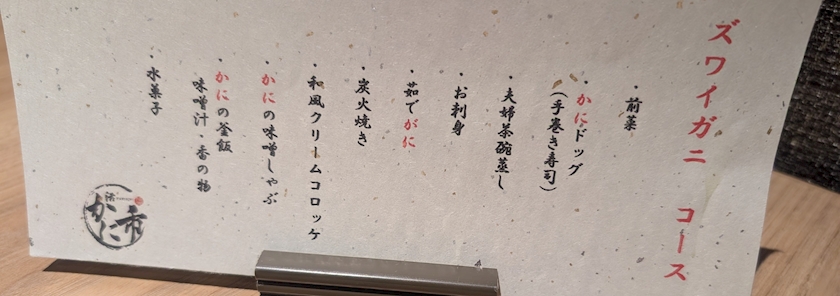 ズワイガニ　コース
・前菜
・かにドッグ
（手巻き寿司）
・夫婦茶碗蒸し
・お刺身
・茹でがに
・炭火焼き
・和風クリームコロッケ
・かにの味噌しゃぶ
・かにの釜飯
味噌汁・香の物
・水菓子
活
かに市